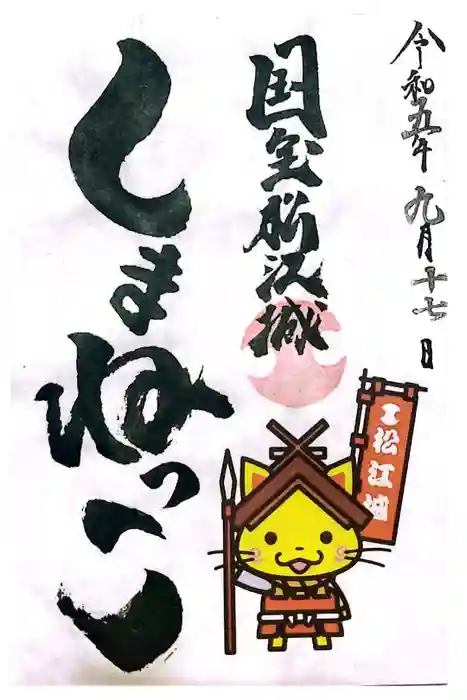 令和五年 九月十七日
国宝松江城
しまねっこ
松江城